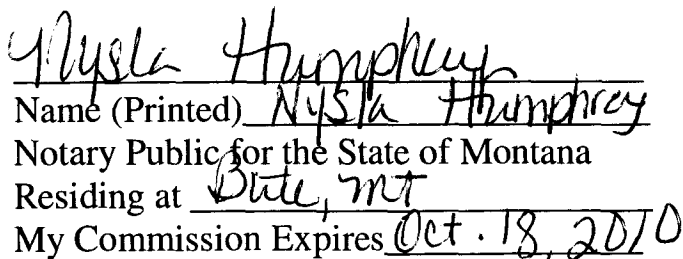 Nysla Humphrey
Name (Printed) Nysla Humphrey
Notary Public for the State of Montana
Residing at Butte, MT
My Commission Expires Oct. 18, 2010